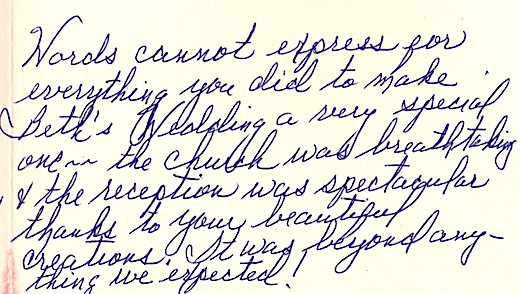 Words cannot express for
everything you did to make
Beth's Wedding a very special
one ~ the church was breathtaking
& the reception was spectacular
thanks to your beautiful
creations. It was beyond any-
thing we expected!